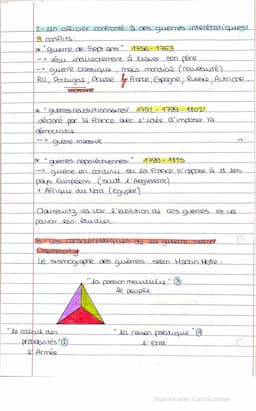 2- Un officier confronté à des guerres interétatiques
3 conflits:
* "guerre de Sept ans" 1756-1763
→ vécu indirectement à travers son père
→ guerre classique, mais mondiale (nouveauté)
RU, Portugal, Prusse France, Espagne, Russie, Autriche
victoire
* "guerres révolutionnaires" 1792-1799-1802
déclaré par la France avec l'idée d'imposer la
démocratie
→ guerre massive
* "guerres napoléoniennes" 1799-1815
→ guerre en continu où la France s'oppose à tt les
pays Européens (sauf l'Angleterre)
+ Afrique du Nord (Egypte)
Clausewitz va voir l'évolution de ces guerres et va
pouvoir les étudier.
les caractéristiques de la guerre selon
Clausewitz
Le sismographe des guerres selon Martin Motte:
"la passion meurtrière" ③
le peuple
"le calcul des
probabilités" ②
l'Armée
"la raison politique" ①
l'état
Scanné avec CamScanner